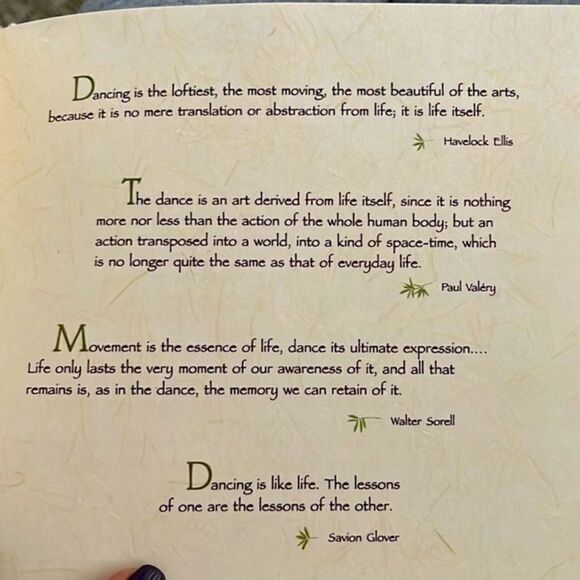 Dancing is the loftiest, the most moving, the most beautiful of the arts,
because it is no mere translation or abstraction from life; it is life itself.
Havelock Ellis
The dance is an art derived from life itself, since it is nothing
more nor less than the action of the whole human body; but an
action transposed into a world, into a kind of space-time, which
is no longer quite the same as that of everyday life.
Paul Valéry
Movement is the essence of life, dance its ultimate expression....
Life only lasts the very moment of our awareness of it, and all that
remains is, as in the dance, the memory we can retain of it.
Walter Sorell
Dancing is like life. The lessons
of one are the lessons of the other.
Savion Glover